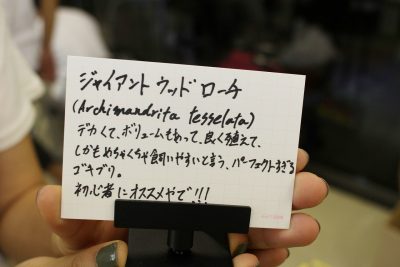 ジャイアント ウッド ローチ
(Archimandrita tesselata)
デカくて、ボリュームもあって、良く殖えて、
しかもめちゃくちゃ飼いやすいと言う、パーフェクトすぎる
ゴキブリ。
初心者にオススメやで!!!